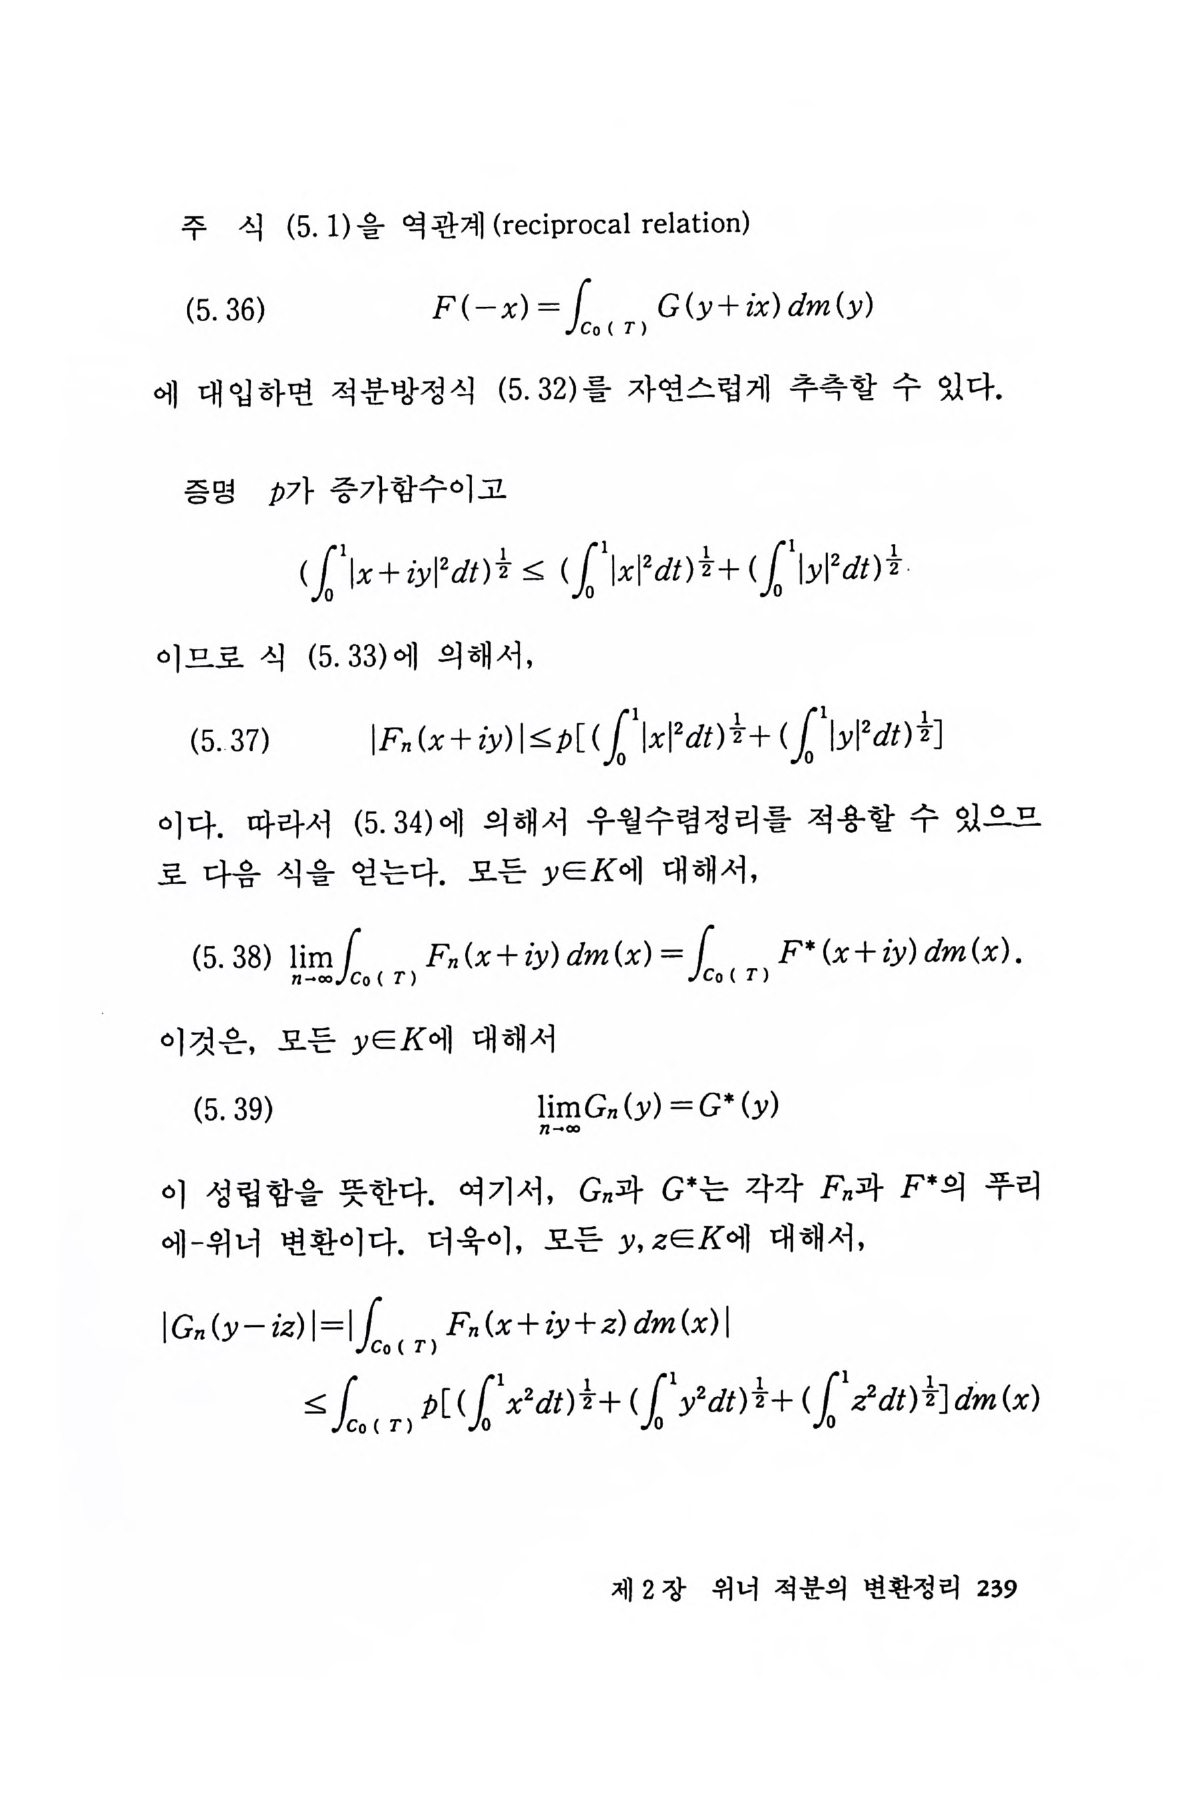 주 식 (5. 1)을 역관계(reciprocal relation)
(5. 36) F(−x)=∫_{C₀(T)} G(y+ix)dm(y)
에 대입하면 적분방정식 (5. 32)를 자연스럽게 추측할 수 있다.
증명 p가 증가함수이고
(∫₀¹|x+iy|²dt)^{1/2} ≤ (∫₀¹|x|²dt)^{1/2}+(∫₀¹|y|²dt)^{1/2}
이므로 식 (5. 33)에 의해서,
(5. 37) |Fₙ(x+iy)|≤p[(∫₀¹|x|²dt)^{1/2}+(∫₀¹|y|²dt)^{1/2}]
이다. 따라서 (5. 34)에 의해서 우월수렴정리를 적용할 수 있으므
로 다음 식을 얻는다. 모든 y∈K에 대해서,
(5. 38) lim_{n→∞}∫_{C₀(T)} Fₙ(x+iy)dm(x)=∫_{C₀(T)} F*(x+iy)dm(x).
이것은, 모든 y∈K에 대해서
(5. 39) lim_{n→∞}Gₙ(y)=G*(y)
이 성립함을 뜻한다. 여기서, Gₙ과 G*는 각각 Fₙ과 F*의 푸리
에-위너 변환이다. 더욱이, 모든 y, z∈K에 대해서,
|Gₙ(y−iz)|=|∫_{C₀(T)} Fₙ(x+iy+z)dm(x)|
≤∫_{C₀(T)} p[(∫₀¹x²dt)^{1/2}+(∫₀¹y²dt)^{1/2}+(∫₀¹z²dt)^{1/2}]dm(x)
제 2 장 위너 적분의 변환정리 239